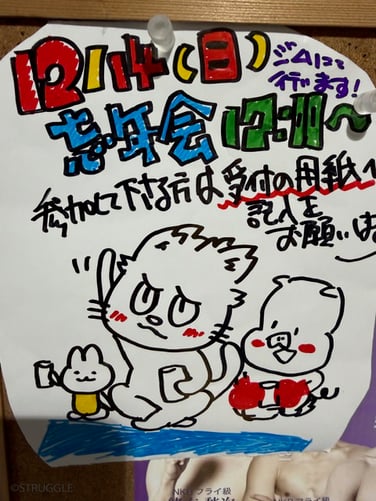 12/14(日)
ジムにて
行います!
忘年会 12:00~
参加して下さる方は 受付の用紙へ
記入を
お願いしま
©STRUGGLE
フライ級
フライ級